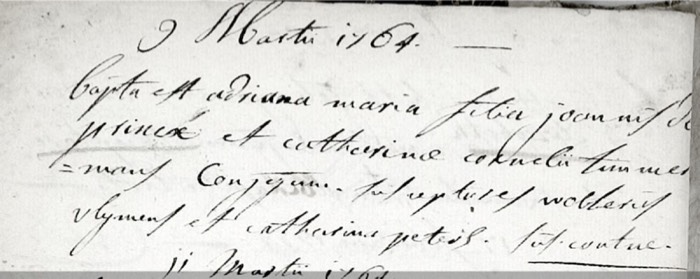 9 Martii 1764. —
bapta est adriana maria filia joannis de
prince et catharinæ cornelii timmer
=mans Conjugum. susceptores wolterus
vlymens et catharina peters. sus. contue.
11 Martii 1764